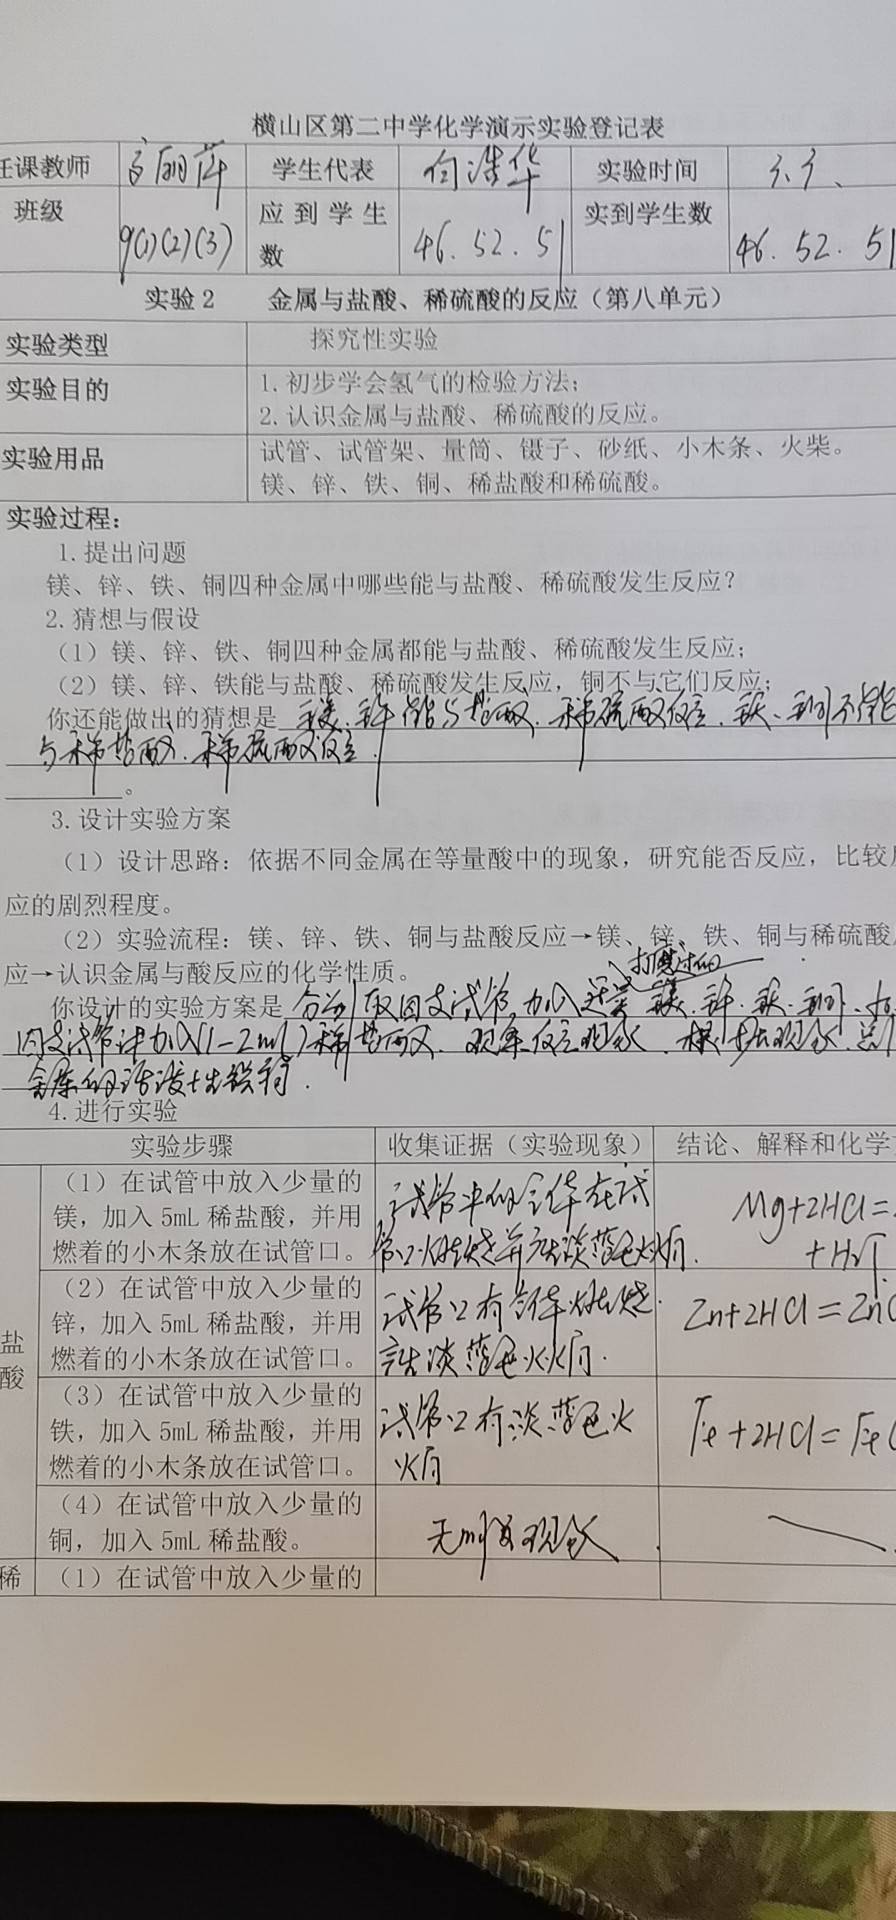 横山区第二中学化学演示实验登记表
任课教师 高丽萍 学生代表 何浩华 实验时间
班级 9(1)(2)(3) 应到学生数 46. 52. 51 实到学生数 46. 52. 51
实验2 金属与盐酸、稀硫酸的反应（第八单元）
实验类型 探究性实验
实验目的 1.初步学会氢气的检验方法；
2.认识金属与盐酸、稀硫酸的反应。
实验用品 试管、试管架、量筒、镊子、砂纸、小木条、火柴。
镁、锌、铁、铜、稀盐酸和稀硫酸。
实验过程：
1.提出问题
镁、锌、铁、铜四种金属中哪些能与盐酸、稀硫酸发生反应？
2.猜想与假设
（1）镁、锌、铁、铜四种金属都能与盐酸、稀硫酸发生反应；
（2）镁、锌、铁能与盐酸、稀硫酸发生反应，铜不与它们反应；
你还能做出的猜想是 镁、锌能与盐酸、稀硫酸反应，铁、铜不能
与稀盐酸、稀硫酸反应
。
3.设计实验方案
（1）设计思路：依据不同金属在等量酸中的现象，研究能否反应，比较
应的剧烈程度。
（2）实验流程：镁、锌、铁、铜与盐酸反应→镁、锌、铁、铜与稀硫酸
应→认识金属与酸反应的化学性质。
打磨过的
你设计的实验方案是 分别取四支试管，加入适量镁、锌、铁、铜、
四支试管中加入(1-2ml)稀盐酸，观察反应现象，根据现象
金属的活泼性
4.进行实验
实验步骤 收集证据（实验现象） 结论、解释和化学
盐酸
（1）在试管中放入少量的
镁，加入5mL稀盐酸，并用
燃着的小木条放在试管口。
试管中的气体在试
管口燃烧并产生淡蓝色火焰.
Mg+2HCl=
+H₂↑
（2）在试管中放入少量的
锌，加入5mL稀盐酸，并用
燃着的小木条放在试管口。
试管口有气体燃烧.
淡蓝色火焰.
Zn+2HCl=Zn
（3）在试管中放入少量的
铁，加入5mL稀盐酸，并用
燃着的小木条放在试管口。
试管口有淡蓝色火
焰
Fe+2HCl=Fe
（4）在试管中放入少量的
铜，加入5mL稀盐酸。
无明显现象
稀 （1）在试管中放入少量的